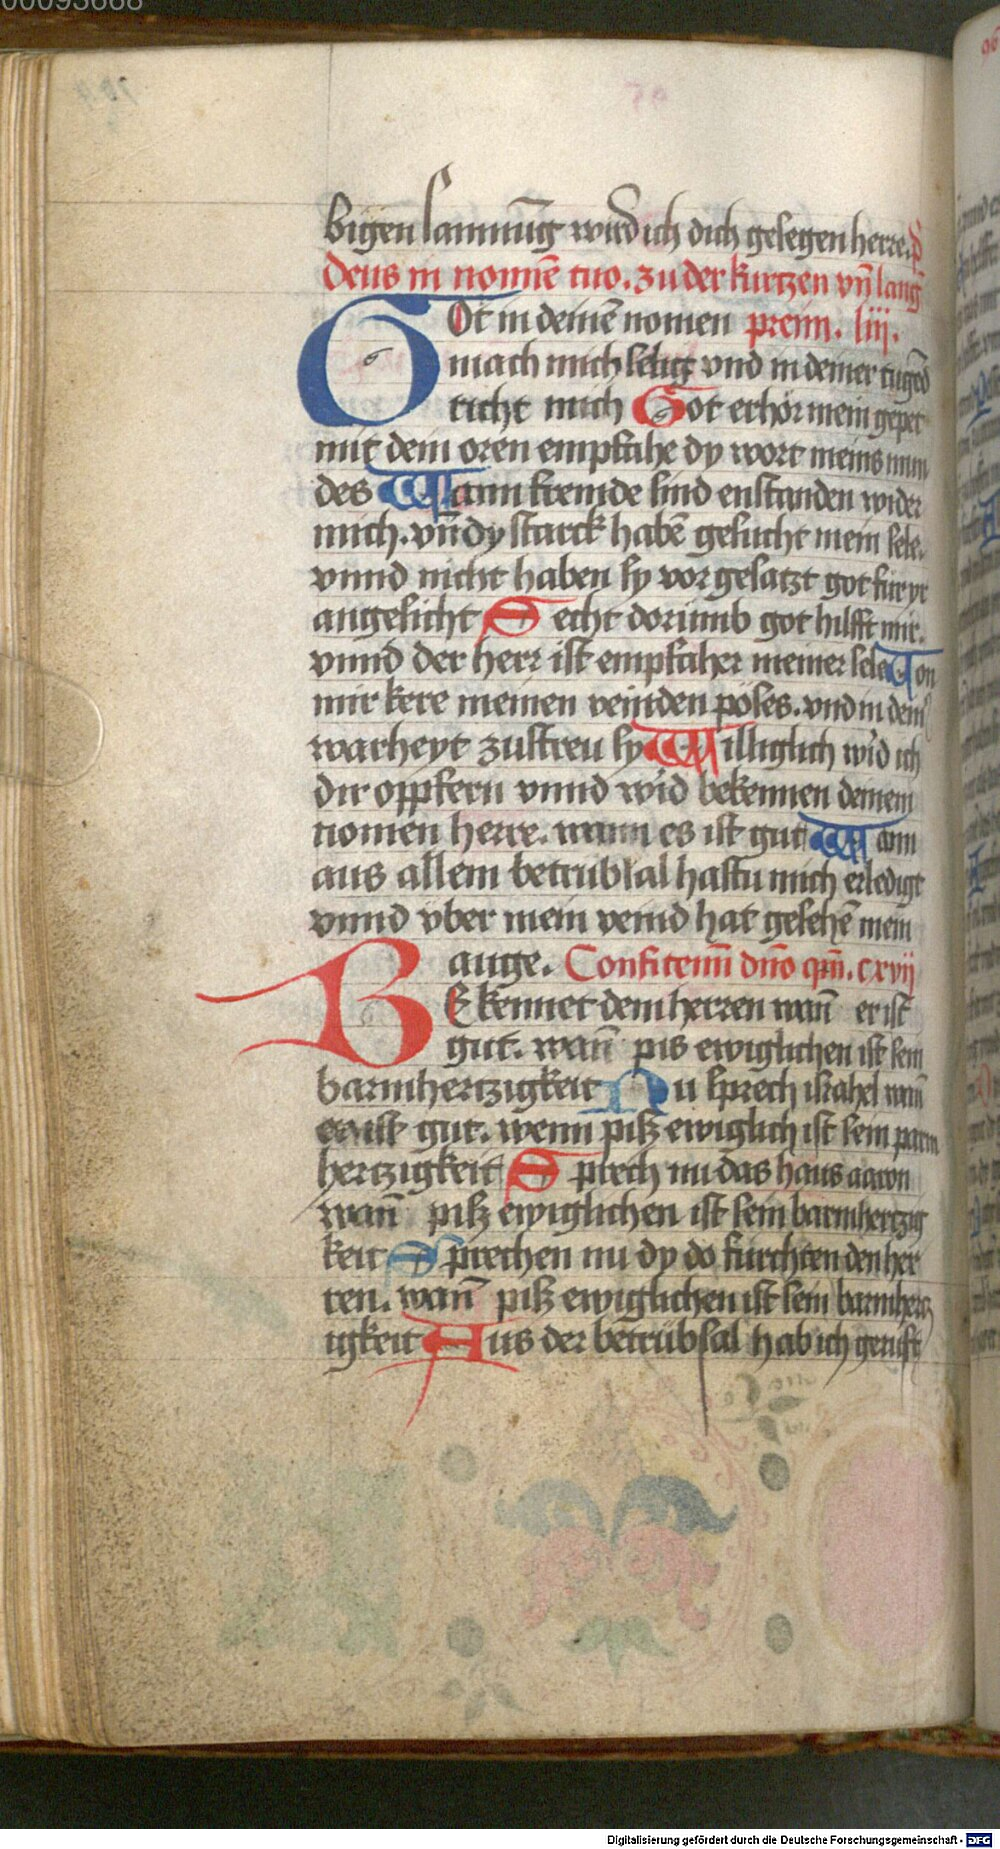 00093668
95
96
bigen samnūg wird ich dich gesegen herre. p̄
deus in nomīe tuo. zu der kurtzen vn̄ lang
Got in deinē nomen prenn. liij.
mach mich selig vnd in deiner tugēd
richt mich Got erhör mein gepet
mit dein oren empfahe dy wort meins mun
des Wann fremde sind enstanden wider
mich. vn̄ dy starck habē gesucht mein sele.
vnnd nicht haben sy vor gesatzt got für yr
angesicht Secht dorumb got hilfft mir.
vnnd der herr ist empfaher meiner sele Von
mir kere meinen veinden pöses. vnd in dein̄
warheyt zustreu sy Williglich wi͛d ich
dir oppfern vnnd wi͛d bekennen deinem
nomen herre. wann es ist gut Wann
aus allem betrubsal hastu mich erledigt
vnnd vber mein veind hat gesehē mein
auge. Confitemī dn̄o qm̄. cxvij
Bekennet dem herren wan̄ er ist
gut. wan̄ pis ewiglichen ist sein
barmhertzigkeit Nu sprech israhel wan̄
er ist gut. wenn pisz ewiglich ist sein parm
hertzigkeit Sprech nu das haus aaron
wan̄ pisz ewiglichen ist sein barmhertzig
keit Sprechen nu dy do fürchten den her
ren. wan̄ pisz ewiglichen ist sein barmhertz
igkeit Aus der betrübsal hab ich geruft
Digitalisierung gefördert durch die Deutsche Forschungsgemeinschaft - DFG